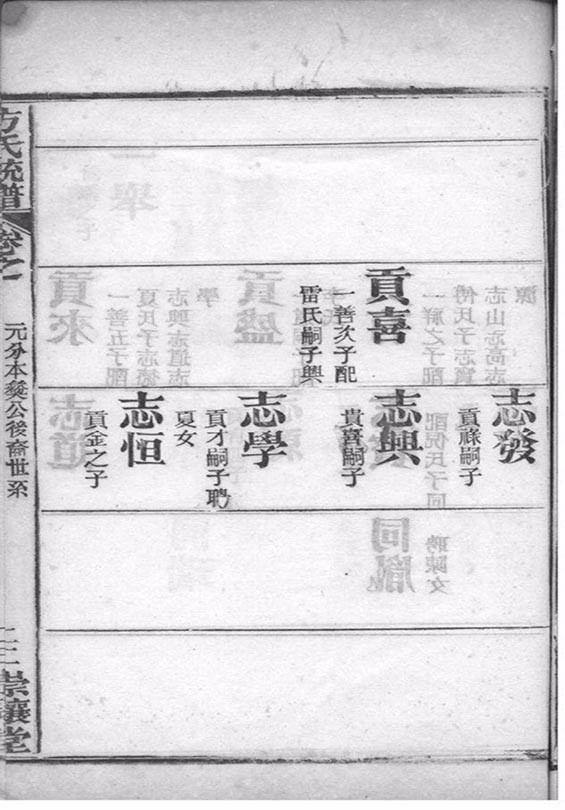 貢喜
一善次子配
雷氏嗣子興
志發
貢祿嗣子
志興
貢喜嗣子
志學
貢才嗣子聘
夏女
志恒
貢金之子
方氏統譜
卷之一
元分本燮公後裔世系
崇讓堂